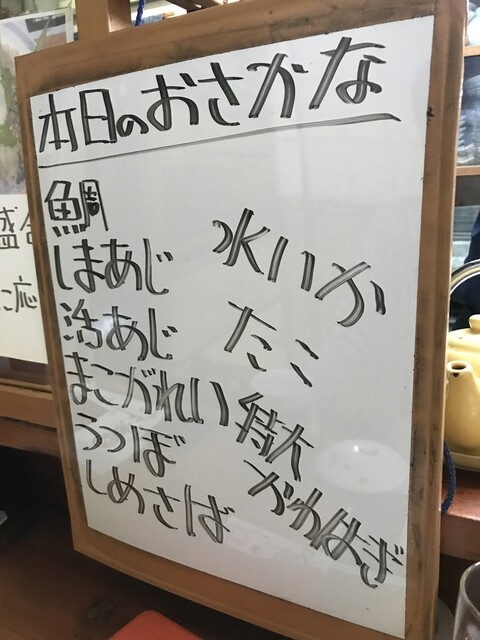 本日のおさかな
鯛
しまあじ
活あじ
まこがれい
うつぼ
しめさば
水いか
たこ
特大
かわはぎ
盛
に応